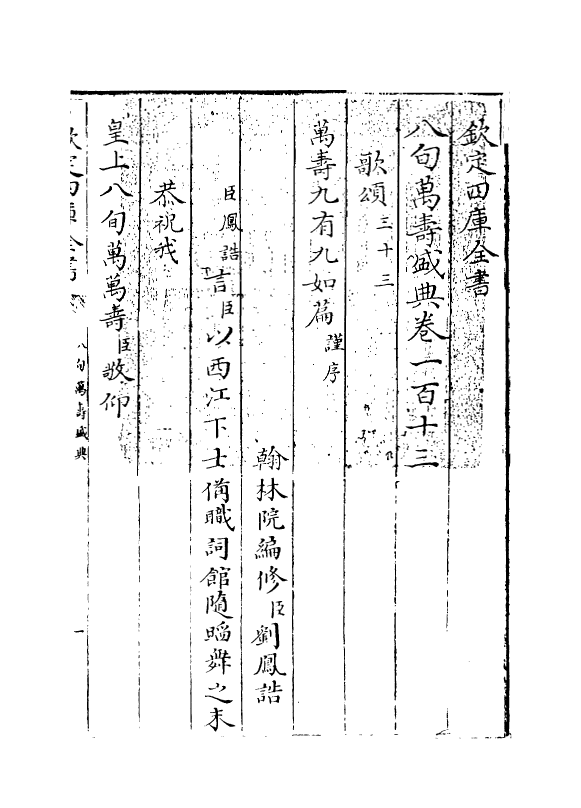 欽定四庫全書
八旬萬壽盛典卷一百十三
歌頌三十三
萬壽九有九如篇謹序
翰林院編修臣劉鳳誥
臣鳳誥言臣以西江下士備職詞館隨蹈舞之末
恭祝我
皇上八旬萬萬壽臣敬仰
欽定四庫全書
八旬萬壽盛典
一